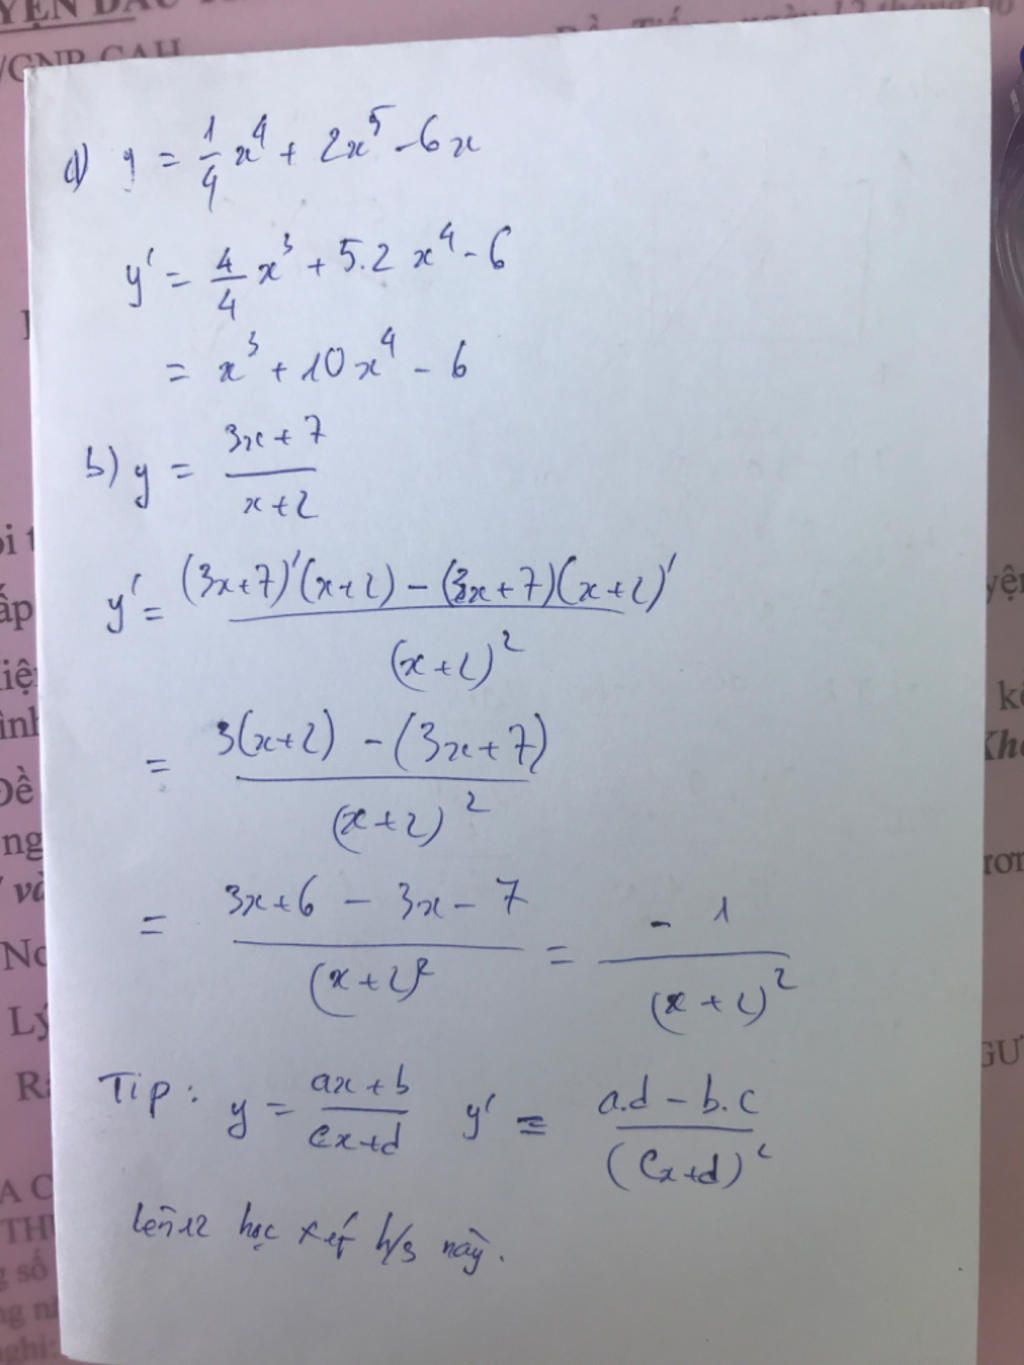 YỆN DẦU T
/GNP-CAH
a) y = 1/4 x⁴ + 2x⁵ - 6x
y' = 4/4 x³ + 5.2 x⁴ - 6
= x³ + 10x⁴ - 6
b) y = (3x + 7)/(x + 2)
y' = ((3x+7)'(x+2) - (3x+7)(x+2)')/(x+2)²
= (3(x+2) - (3x+7))/(x+2)²
= (3x+6 - 3x - 7)/(x+2)² = - 1/(x+2)²
Tip: y = (ax+b)/(cx+d) y' = (a.d - b.c)/(cx+d)²
lên 12 học xét h/s này.